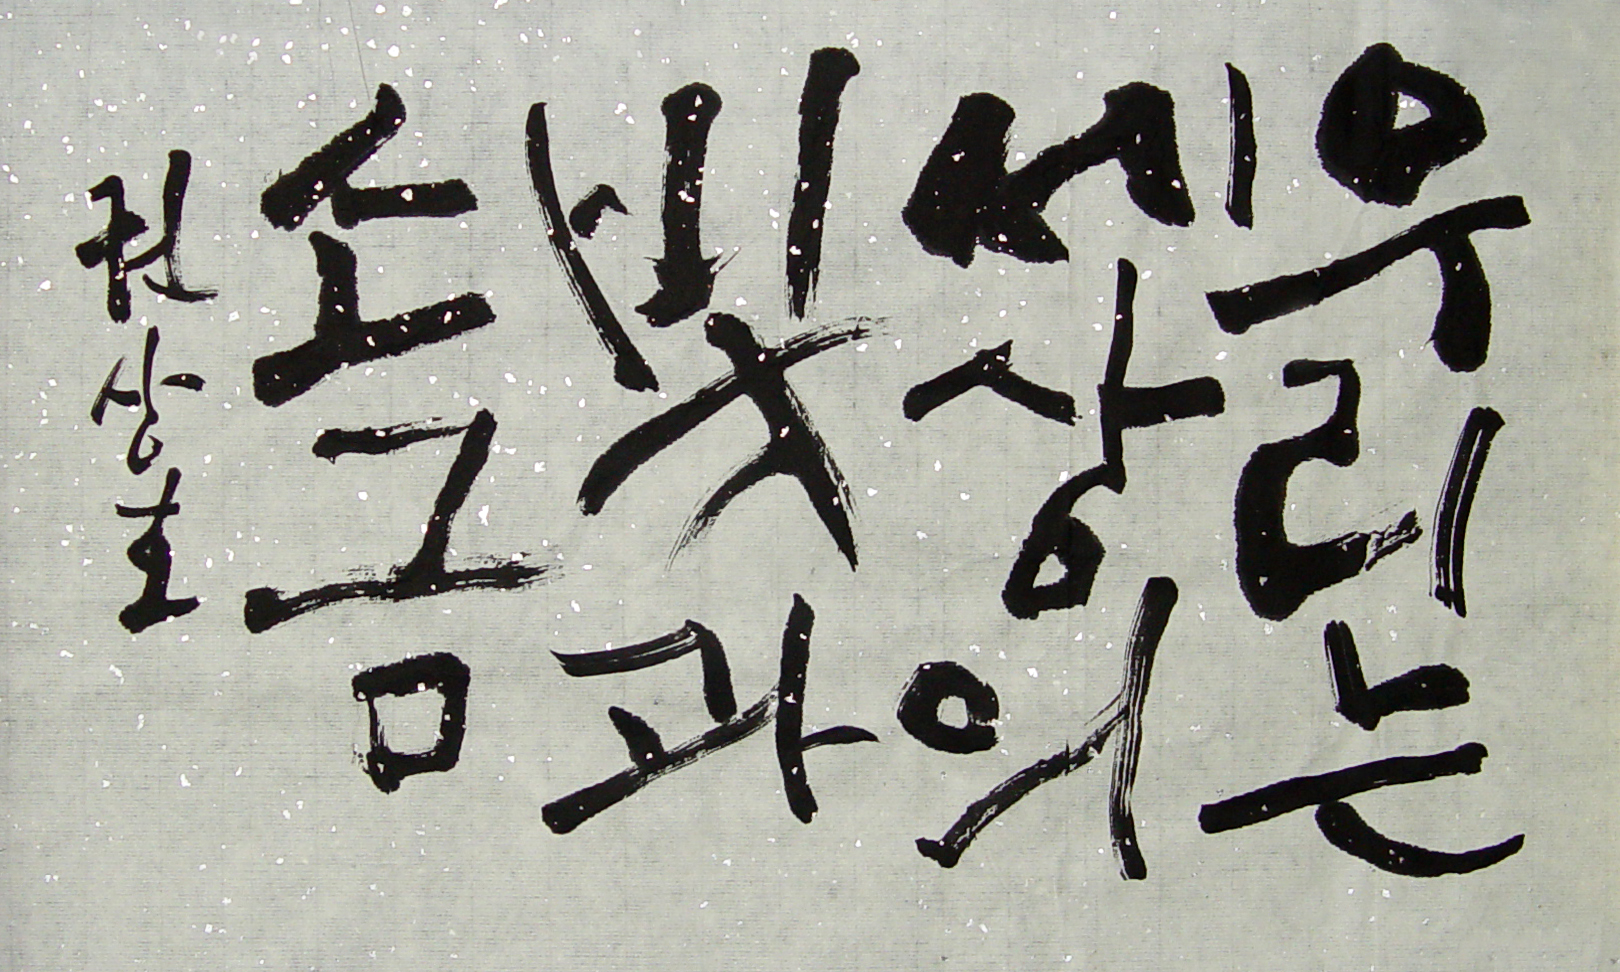 우리는
세상의
빛과
소금
권상호